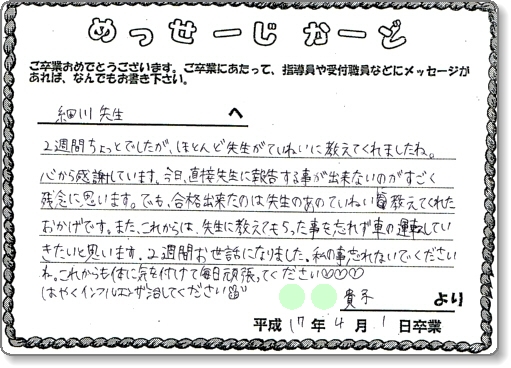 めっせーじかーど
ご卒業おめでとうございます。ご卒業にあたって、指導員や受付職員などにメッセージが
あれば、なんでもお書き下さい。
細川先生 へ
2週間ちょっとでしたが、ほとんど先生がていねいに教えてくれましたね。
心から感謝しています。今日、直接先生に報告する事が出来ないのがすごく
残念に思います。でも、合格出来たのは先生のあのていねい 教えてくれた
おかげです。また、これからは、先生に教えてもらった事を忘れず車の運転して
いきたいと思います。2週間お世話になりました。私の事忘れないでください
ね。これからも体に気を付けて毎日頑張ってください♡♡♡
はやくインフルエンザ治してください
貴子 より
平成17年4月1日卒業